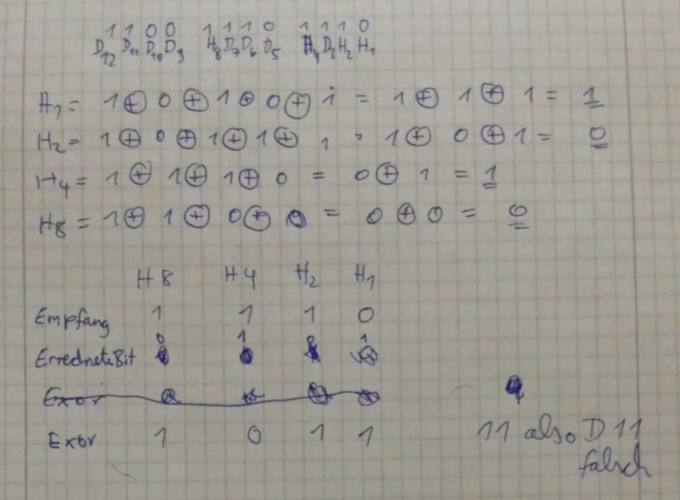 1 1 0 0 1 1 1 0 1 1 1 0
D12 D11 D10 D9 H8 D7 D6 D5 H4 D3 H2 H1
H1 = 1 ⊕ 0 ⊕ 1 ⊕ 0 ⊕ 1 = 1 ⊕ 1 ⊕ 1 = 1
H2 = 1 ⊕ 0 ⊕ 1 ⊕ 1 ⊕ 1 = 1 ⊕ 0 ⊕ 1 = 0
H4 = 1 ⊕ 1 ⊕ 1 ⊕ 0 = 0 ⊕ 1 = 1
H8 = 1 ⊕ 1 ⊕ 0 ⊕ 0 = 0 ⊕ 0 = 0
H8 H4 H2 H1
Empfang 1 1 1 0
0 1 0 1
ErrechneteBit
Exor
Exor 1 0 1 1
11 also D11
falsch